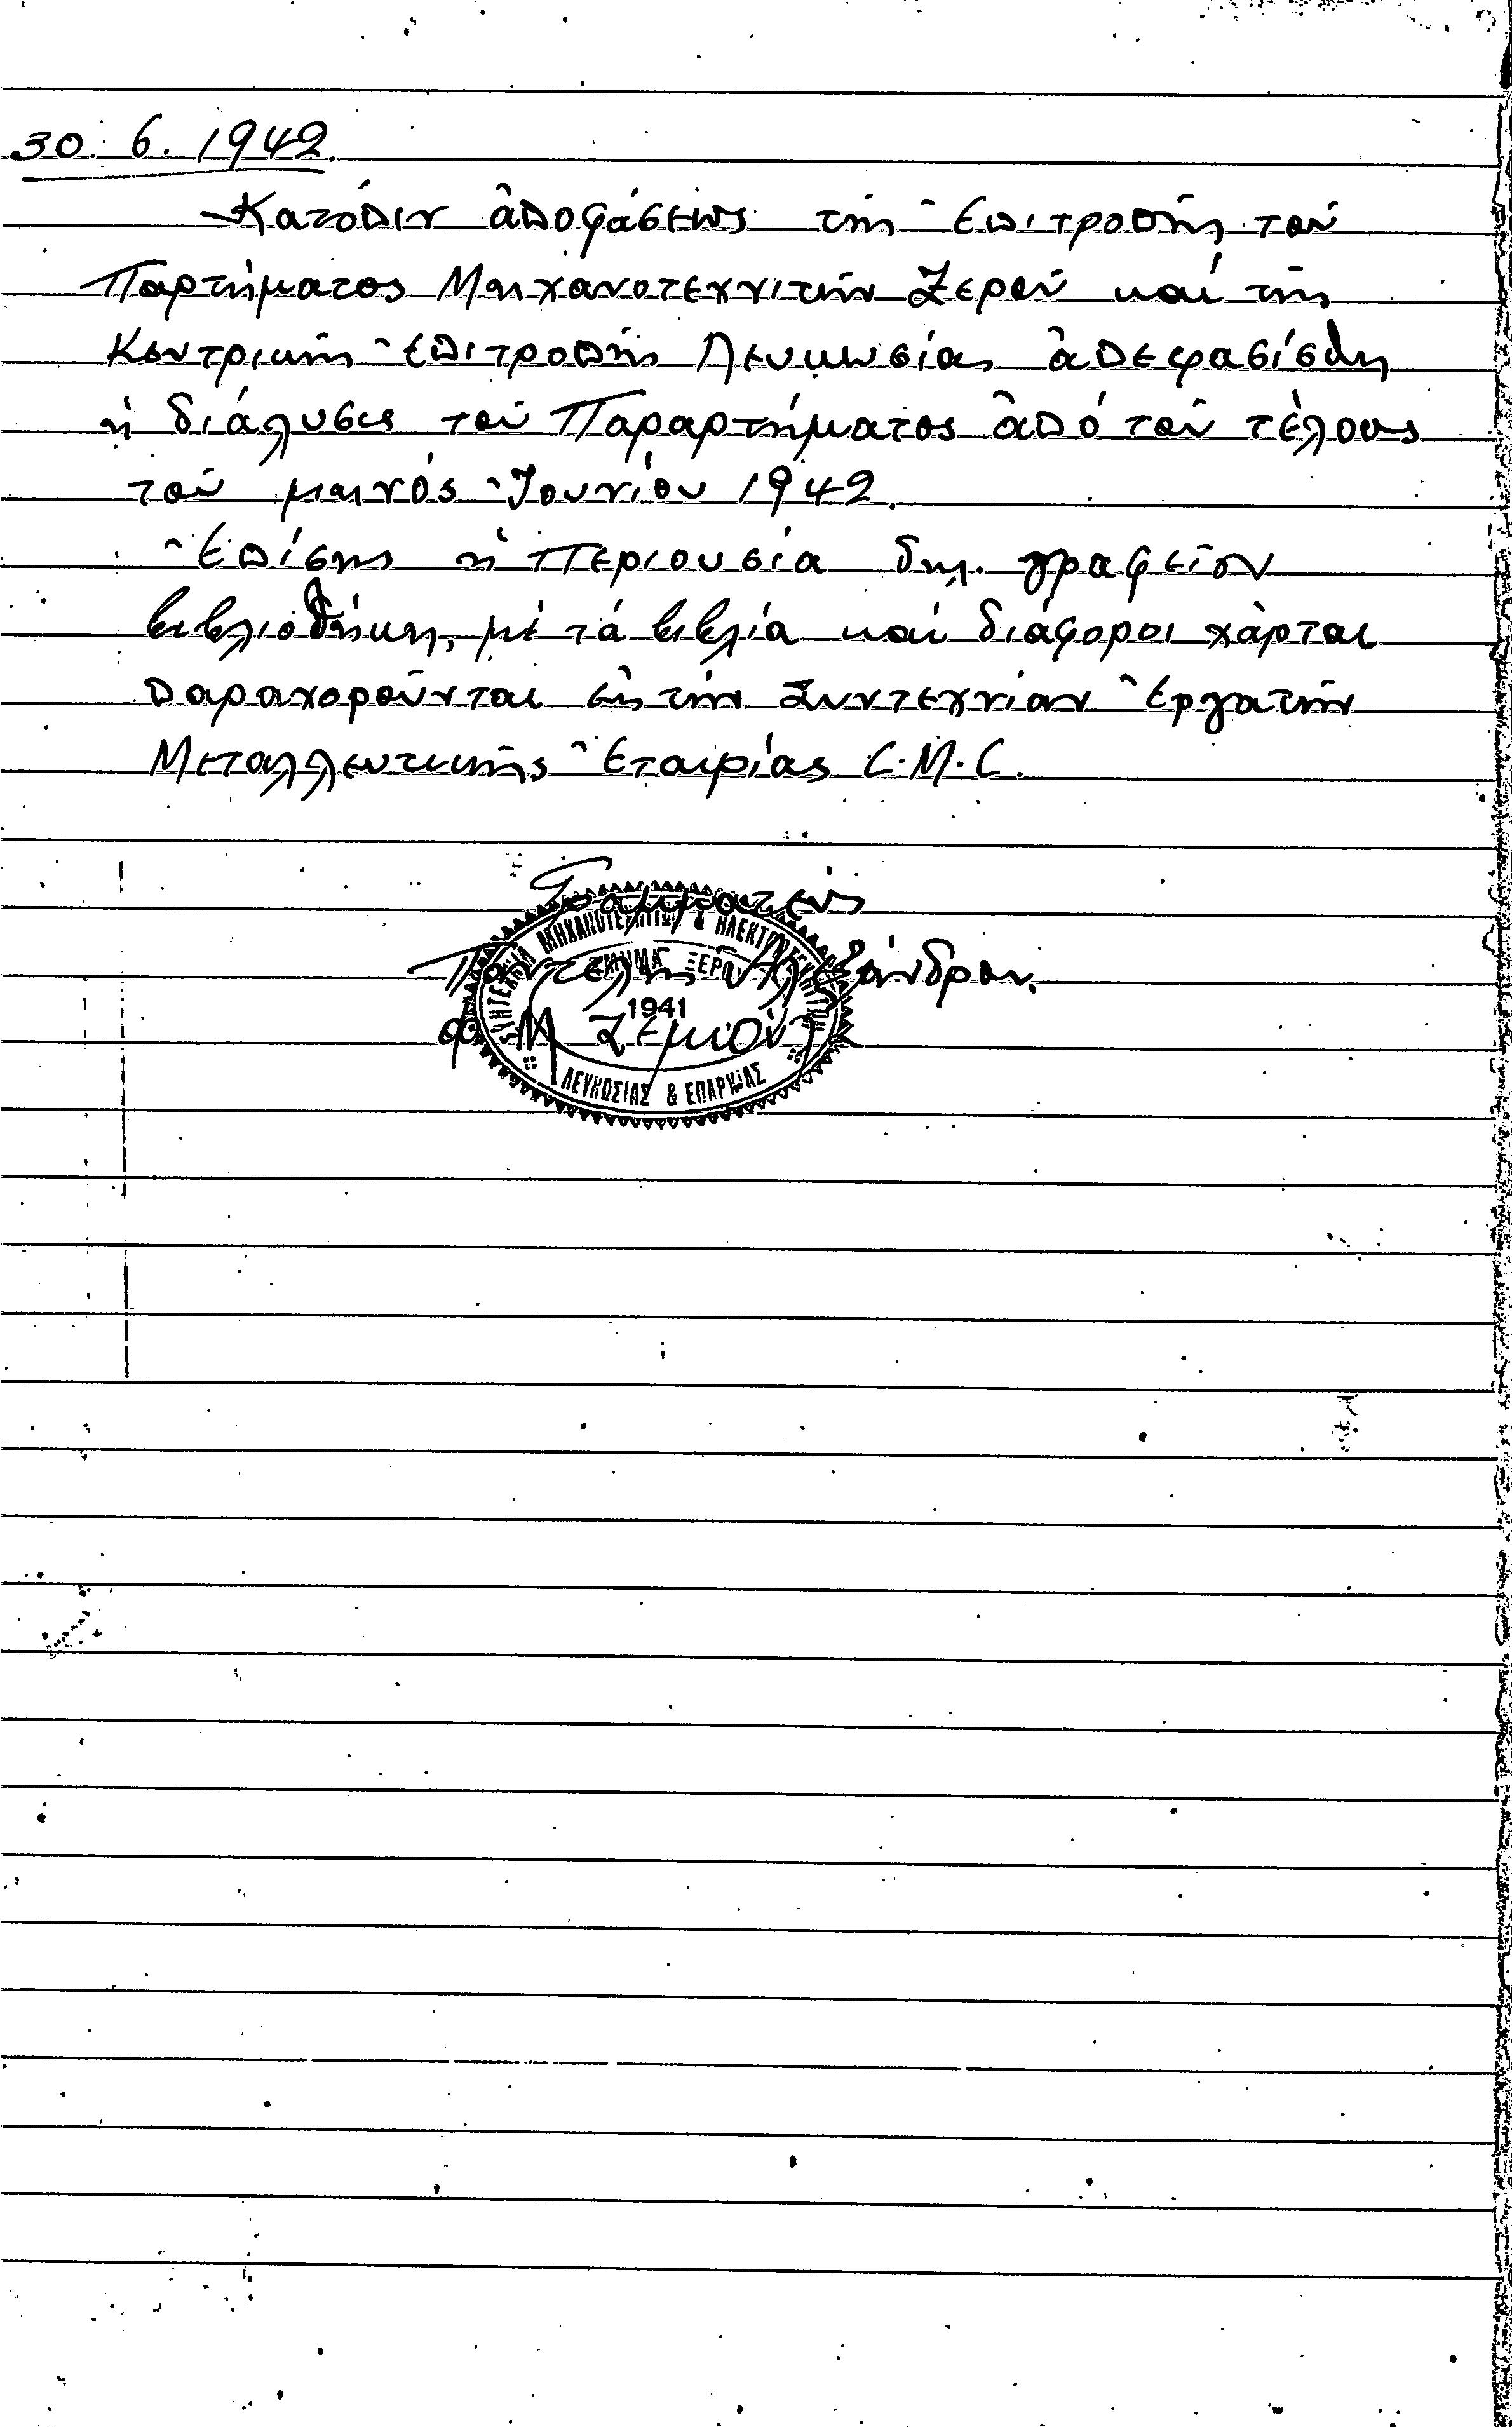 30. 6. 1942.
Κατόπιν ἀποφάσεως τῆς Ἐπιτροπῆς τοῦ
Παρτήματος Μηχανοτεχνιτῶν Ξεροῦ καί τῆς
Κεντρικῆς Ἐπιτροπῆς Λευκωσίας ἀπεφασίσθη
ἡ διάλυσις τοῦ Παραρτήματος ἀπό τοῦ τέλους
τοῦ μηνός Ἰουνίου 1942.
Ἐπίσης ἡ Περιουσία δηλ. γραφεῖον
βιβλιοθήκη, μέ τά βιβλία καί διάφοροι χάρται
παραχοροῦνται εἰς τήν Συντεχνίαν Ἐργατῶν
Μεταλλευτικῆς Ἑταιρίας C.M.C.
Γραμματεύς
Παντελῆς Ἀλεξάνδρου.
ΣΥΝΤΕΧΝΙΑ ΜΗΧΑΝΟΤΕΧΝΙΤΩΝ & ΗΛΕΚΤΡΟΤΕΧΝΙΤΩΝ
ΤΜΗΜΑ ΞΕΡΟΥ
1941
ΛΕΥΚΩΣΙΑΣ & ΕΠΑΡΧΙΑΣ